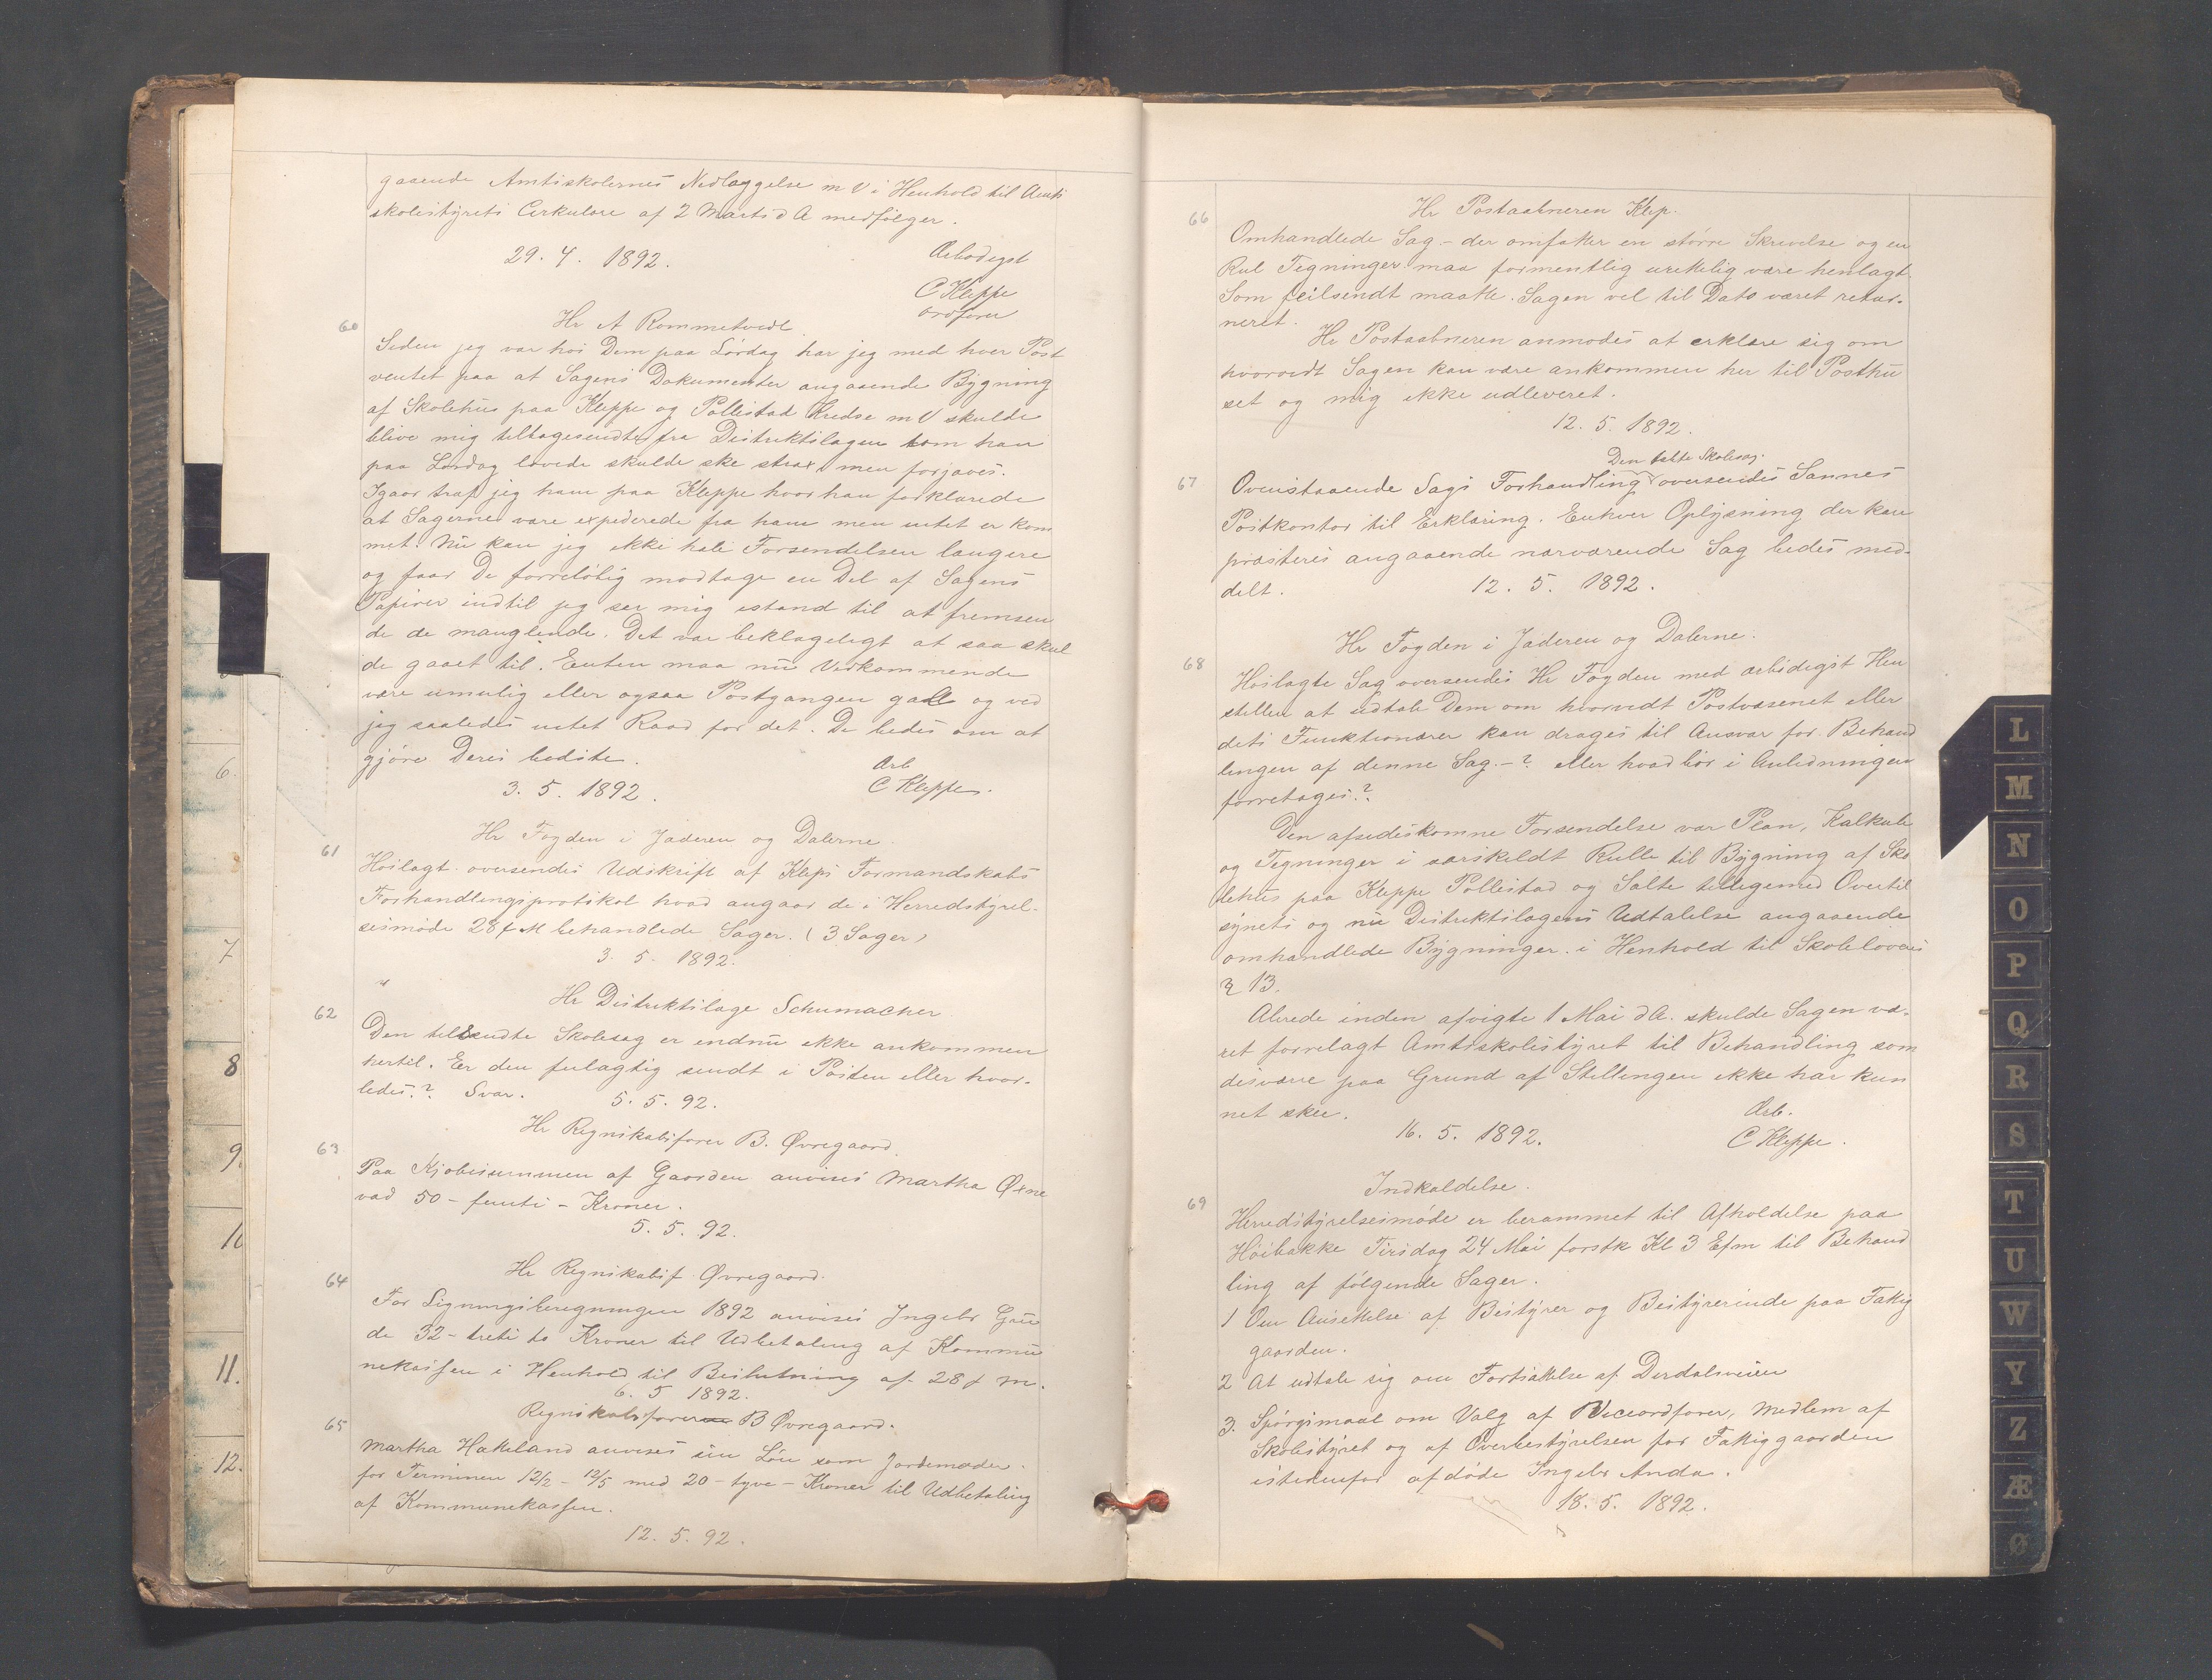 gaaende Amtsskolernes Nedlæggelse m V i Henhold til Amts
skolestyrets Cirkulære af 2 Marts d A medfølger.
29. 4. 1892.
Ærbødigst
C Kleppe
Ordfører
60
Hr A Rommetvedt.
Siden jeg var hos Dem paa Lørdag har jeg med hver Post
ventet paa at Sagens Dokumenter angaaende Bygning
af Skolehus paa Kleppe og Pollestad Kredse m V skulde
blive mig tilbagesendte fra Distriktslægen som han
paa Lørdag lovede skulde ske strax, men forjæves.
Igaar traf jeg ham paa Kleppe hvor han forklarede
at Sagerne vare expederede fra ham men intet er kom
met. Nu kan jeg ikke hale Forsendelsen længere
og faar De forreløbig modtage en Del af Sagens
Papirer indtil jeg ser mig istand til at fremsen
de de manglende. Det var beklageligt at saa skul
de gaaet til. Enten maa nu Vedkommende
være umulig eller ogsaa Postgangen gall og ved
jeg saaledes intet Raad for det. De bedes om at
gjøre Deres bedste.
Ærb
3. 5. 1892.
C Kleppe.
Hr Fogden i Jæderen og Dalerne.
61
Hoslagt oversendes Udskrift af Kleps Formandskabs
Forhandlingsprotokol hvad angaar de i Herredstyrel-
sesmøde 28 f M behandlede Sager. (3 Sager)
3. 5. 1892.
"
Hr Distriktslæge Schumacher.
62
Den tilsendte Skolesag er endnu ikke ankommen
hertil. Er den feilagtig sendt i Posten eller hvor-
ledes? Svar.
5. 5. 92.
Hr Regnskabsfører B. Øvregaard.
63
Paa Kjøbesummen af Gaarden anvises Martha Øxne
vad 50 - femti - Kroner.
5. 5. 92.
Hr Regnskabsf. Øvregaard.
64
For Ligningsberegningen 1892 anvises Ingebr Gru
de 32 - treti to Kroner til Udbetaling af Kommu
nekassen i Henhold til Beslutning af 28 f M.
6. 5 1892.
Regnskabsfører B Øvregaard.
65
Martha Hakeland anvises sin Løn som Jordemoder
for Terminen 12/2 - 12/5 med 20 - tyve - Kroner til Udbetaling
af Kommunekassen.
12. 5. 92.
Hr Postaabneren Klep.
66
Omhandlede Sag - der omfatter en større Skrivelse og en
Rul Tegninger maa formentlig urettelig være henlagt.
Som feilsendt maatte Sagen vel til Dato været retur-
neret.
Hr Postaabneren anmodes at erklære sig om
hvorvidt Sagen kan være ankommen her til Posthu
set og mig ikke udleveret.
12. 5. 1892.
Den tabte Skolesag.
67
Ovenstaaende Sags Forhandling oversendes Sannes
Postkontor til Erklæring. Enhver Oplysning der kan
præsteres angaaende nærværende Sag bedes med-
delt.
12. 5. 1892.
Hr Fogden i Jæderen og Dalerne.
68
Hoslagte Sag oversendes Hr Fogden med ærbødigst Hen
stillen at udtale Dem om hvorvidt Postvæsenet eller
dets Funktionærer kan drages til Ansvar for Behand
lingen af denne Sag -? eller hvad bør i Anledningen
forretages?
Den afsedeskomne Forsendelse var Plan, Kalkule
og Tegninger i særskeldt Rulle til Bygning af Sko
lehus paa Kleppe Pollestad og Salte tilligemed Overtil
synets og nu Distriktslægens Udtalelse angaaende
omhandlede Bygninger i Henhold til Skolelovens
§ 13.
Alrede inden afvigte 1 Mai d A. skulde Sagen væ-
ret forrelagt Amtsskolestyret til Behandling som
disværre paa Grund af Stillingen ikke har kun
net skee.
Ærb.
16. 5. 1892.
C Kleppe.
Indkaldelse.
69
Herredstyrelsesmøde er berammet til Afholdelse paa
Høibakke Tirsdag 24 Mai førstk Kl 3 Efm til Behand
ling af følgende Sager.
1 Om Ansettelse af Bestyrer og Bestyrerinde paa Fattig
gaarden.
2 At udtale sig om Fortsættelse af Dirdalsveien
3. Spørgsmaal om Valg af Viceordfører, Medlem af
Skolestyret og af Overbestyrelsen for Fattiggaarden
istedenfor afdøde Ingebr Anda.
18. 5. 1892.
6.
7
8
9.
10
11.
12.
L
M
N
O
P
Q
R
S
T
U
W
Y
Z
Æ
Ø